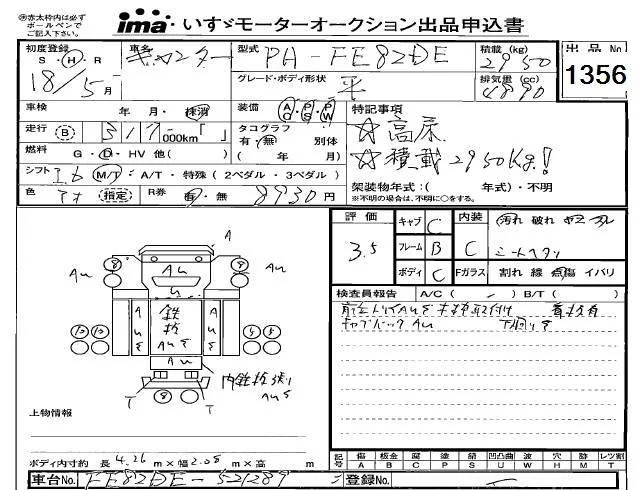 ※赤太枠内は必ず
ボールペンで
ご記入下さい。
ima いすゞモーターオークション出品申込書
初度登録 S・H・R 18/5月
車名 キャンター
型式 PA-FE82DE
積載 (kg) 2950
出品No 1356
グレード・ボディ形状 平
排気量 (cc) 4890
車検 年 月・抹消
装備 AC・PS・PW
特記事項
走行 B 317,000km「 」
タコグラフ 有・無 別体 ( 年 月)
☆高床
☆積載2950Kg!
燃料 G・D・HV 他( )
シフト I.6 M/T・A/T・特殊(2ペダル・3ペダル)
架装物年式:( 年式)・不明
※不明の場合は、不明に○をする。
色 アオ 指定 R券 有・無 8930円
評価 3.5
キャブ C
フレーム B
ボディ C
内装 C 汚れ 破れ
Fガラス 割れ 線 点傷 イバリ
検査員報告 A/C ( ) B/T ( )
キャブバック AU
A
AU
T
T
内鉄板張り
上物情報
ボディ内寸約 長 4.26 m×幅 2.08 m×高 m
記号 傷A 板金B 腐C 塗P 錆S 凹凸曲U 波W 穴H 跡M レツ割T
車台No. FE82DE-521289
登録No.